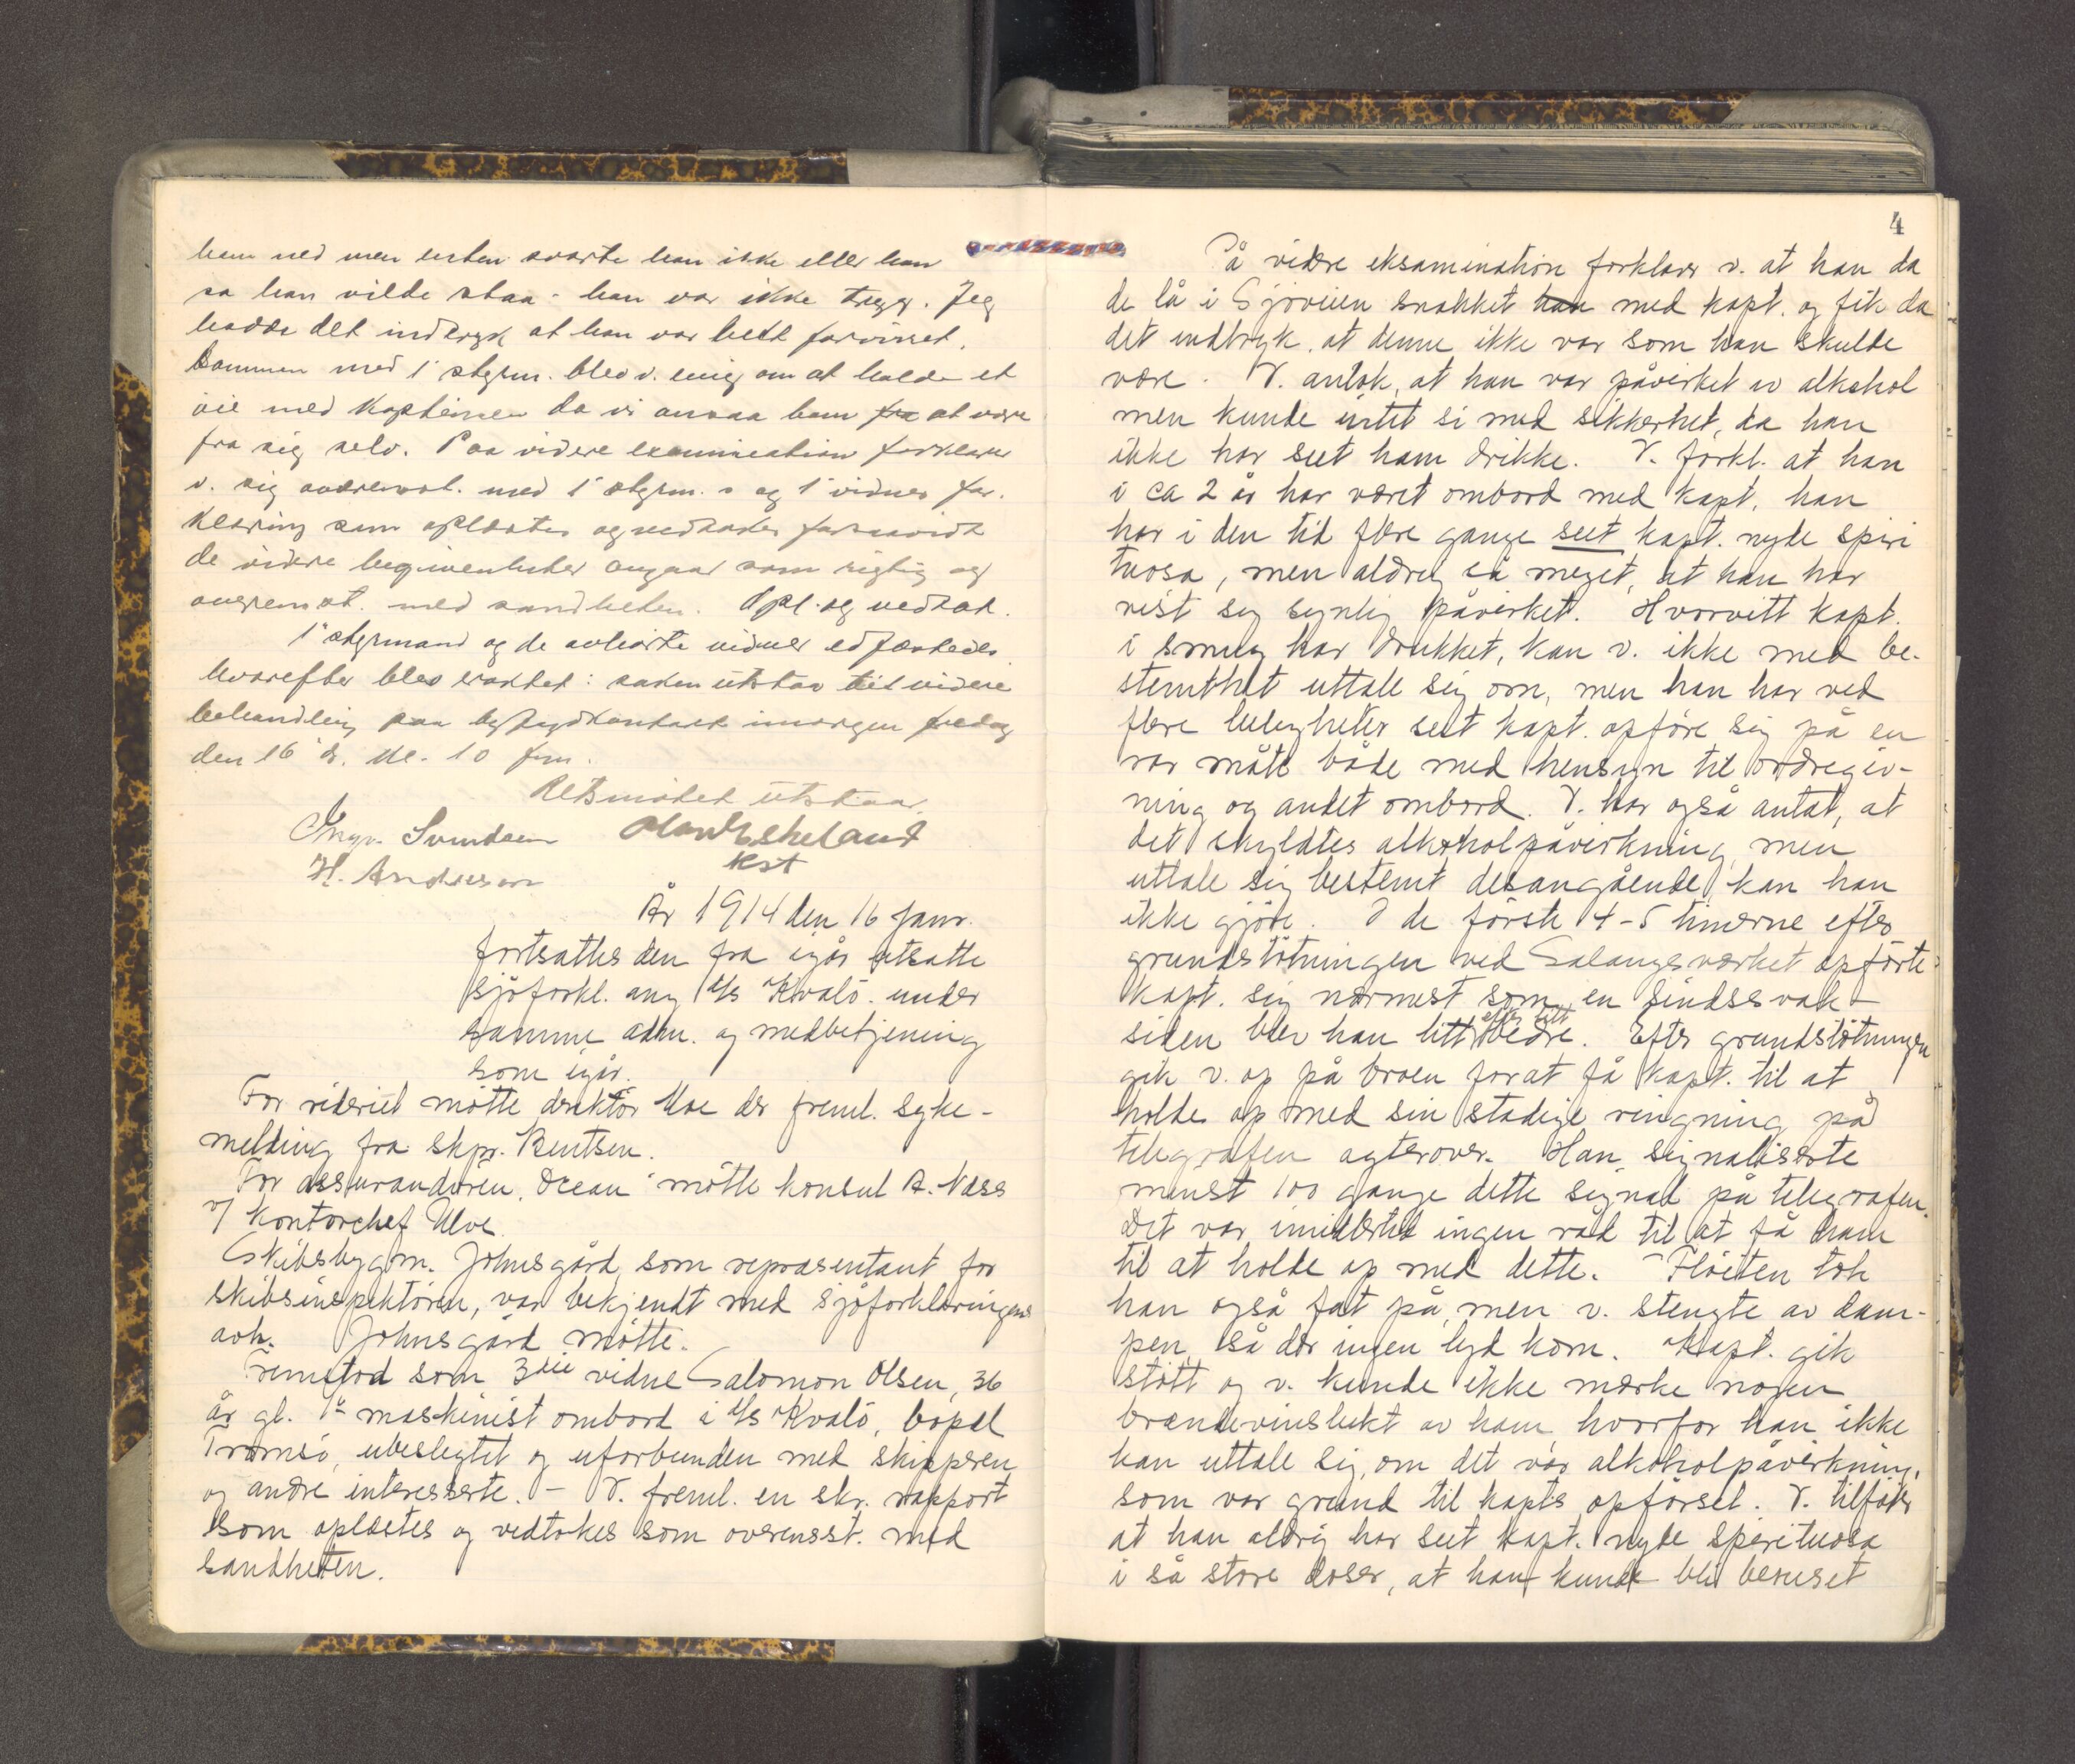 ham ned men enten svarte han ikke eller han
sa han vilde staa - han var ikke trygg. Jeg
hadde det indtryk at han var helt forvirret.
Sammen med 1ste styrm. blev v. enig om at holde et
öie med Kapteinen da vi ansaa ham fra at være
fra sig selv. Paa videre examination forklarer
v. sig overensst. med 1ste styrm.s og 1ste vidnes for-
klaring som oplæstes og vedtokes forsaavidt
de videre begivenheter angaar som rigtig og
overensst. med sandheten. Opl. og vedtat.
1ste styrmand og de avhörte vidner edfæstedes
hvorefter blev eraktet: saken utstaar til videre
behandling paa byfogdkontoret imorgen fredag
den 16 ds. kl. 10 fm.
Retsmötet utstaar.
Ingv. Svendsen Olav Eskeland
H. Andresen kst
År 1914 den 16 janr.
fortsattes den fra igår utsatte
sjöforkl. ang D/S Kvalö. under
samme adm. og medbetjening
som igår.
For rederiet mötte direktör Moe der freml. syke-
melding fra skpr. Bentsen.
For assurandören, "Ocean" mötte konsul A. Næss
v/ kontorchef Ulve
Skibsbygm. Johnsgård som repræsentant for
skibsinspektören, var bekjendt med sjöforklaringens
avh. Johnsgård mötte.
Fremstod som 3die vidne Salomon Olsen, 36
år gl. 1ste maskinist ombord i D/S Kvalö, bopæl
Tromsö, ubeslegtet og uforbunden med skipperen
og andre interesserte. - V. freml. en skr. rapport
som oplæstes og vedtokes som overensst. med
sandheten.
4
På videre eksamination forklarer v. at han da
de lå i Sjöveien snakket han med kapt. og fik da
det indtryk, at denne ikke var som han skulde
være. V. antok, at han var påvirket av alkohol
men kunde intet si med sikkerhet, da han
ikke har seet ham drikke. V. forkl. at han
i ca 2 år har været ombord med kapt. han
har i den tid flere gange seet kapt. nyde spiri
tuosa, men aldrig så meget, at han har
vist sig synlig påvirket. Hvorvitt kapt.
i smug har drukket, kan v. ikke med be-
stemthet uttale sig om, men han har ved
flere leiligheter seet kapt. opföre sig på en
rar måte både med hensyn til ordregiv-
ning og andet ombord. V. har også antat, at
det skyldtes alkoholpåvirkning, men
uttale sig bestemt desangående, kan han
ikke gjöre. I de förste 4-5 timerne efter
grundstötningen ved Salangsverket opförte
kapt. sig nærmest som en sindssvak -
siden blev han litt efter litt bedre. Efter grundstötningen
gik v. op på broen forat få kapt. til at
holde op med sin stadige ringning på
telegrafen agterover. Han signaliserte
minst 100 gange dette signal på telegrafen.
Det var imidlertid ingen råd til at få ham
til at holde op med dette. Flöiten tok
han også fat på, men v. stengte av dam-
pen så der ingen lyd kom. Kapt. gik
stött og v. kunde ikke mærke nogen
brændevinslukt av ham, hvorfor han ikke
kan uttale sig, om det var alkoholpåvirkning,
som var grund til kapts opförsel. V. tilföier
at han aldrig har seet kapt. nyde spirituosa
i så store doser, at han kunde bli beruset